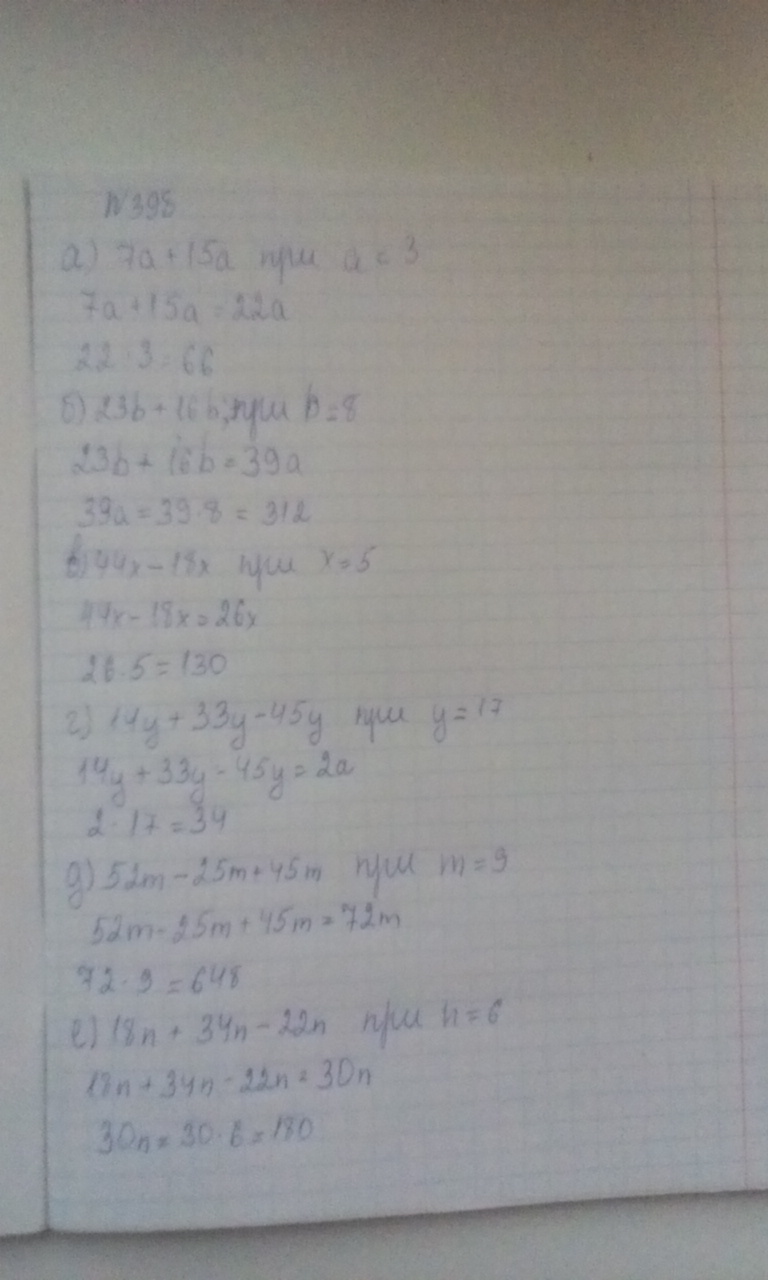 №398
а) 7a + 15a при a = 3
7a + 15a = 22a
22 · 3 = 66
б) 23b + 16b, при b = 8
23b + 16b = 39a
39a = 39 · 8 = 312
в) 44x - 18x при x = 5
44x - 18x = 26x
26 · 5 = 130
г) 14y + 33y - 45y при y = 17
14y + 33y - 45y = 2a
2 · 17 = 34
д) 52m - 25m + 45m при m = 9
52m - 25m + 45m = 72m
72 · 9 = 648
е) 18n + 34n - 22n при n = 6
18n + 34n - 22n = 30n
30n = 30 · 6 = 180